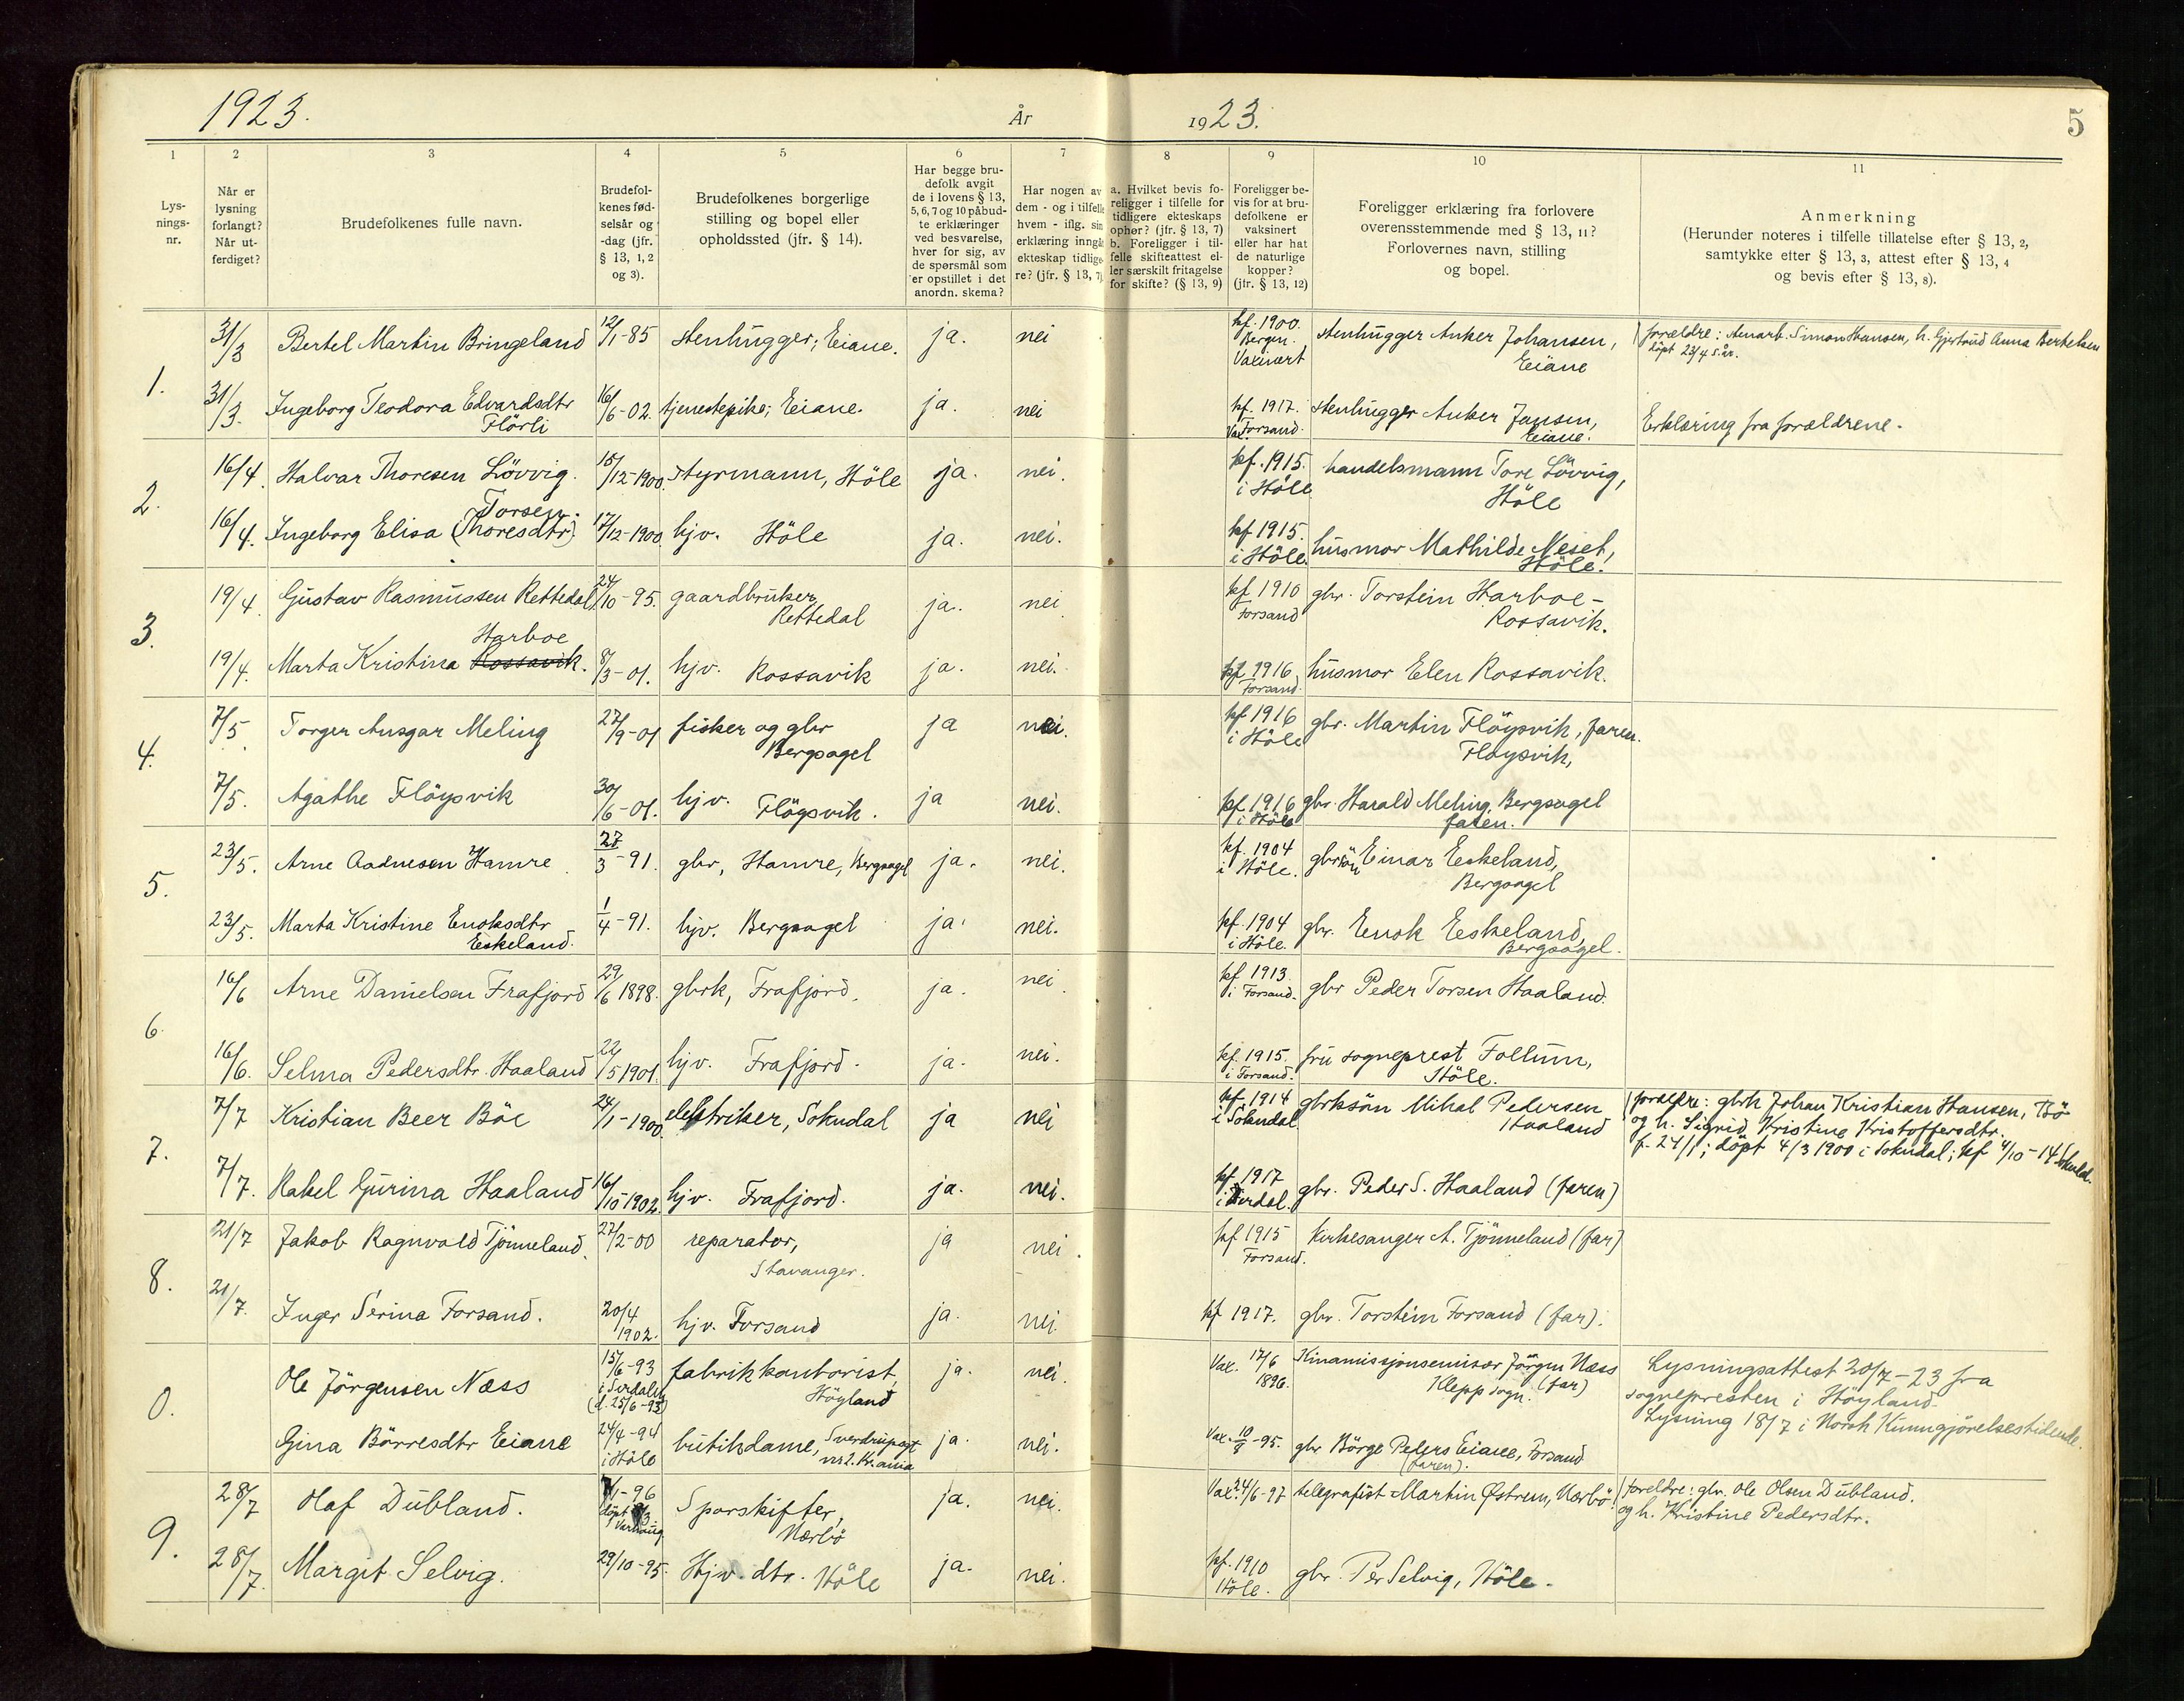 1923.
År
1923.
5
1
2
3
4
5
6
7
8
9
10
11
Lys-
nings-
nr.
Når er
lysning
forlangt?
Når ut-
ferdiget?
Brudefolkenes fulle navn.
Brudefol-
kenes fød-
selsår og
-dag (jfr.
§ 13, 1, 2
og 3).
Brudefolkenes borgerlige
stilling og bopel eller
opholdssted (jfr. § 14).
Har begge bru-
defolk avgit
de i lovens § 13,
5, 6, 7 og 10 påbud-
te erklæringer
ved besvarelse,
hver for sig, av
de spørsmål som
er opstillet i det
anordn. skema?
Har nogen av
dem - og i tilfelle
hvem - iflg. sin
erklæring inngå
ekteskap tidlige-
re? (jfr. § 13, 7)
a. Hvilket bevis fo-
religger i tilfelle for
tidligere ekteskaps
ophør? (jfr. § 13, 7)
b. Foreligger i til-
felle skifteattest el-
ler særskilt fritagelse
for skifte? (§ 13, 9)
Foreligger be-
vis for at bru-
defolkene er
vaksinert
eller har hat
de naturlige
kopper?
(jfr. § 13, 12)
Foreligger erklæring fra forlovere
overensstemmende med § 13, 11?
Forlovernes navn, stilling
og bopel.
Anmerkning
(Herunder noteres i tilfelle tillatelse efter § 13, 2,
samtykke efter § 13, 3, attest efter § 13, 4
og bevis efter § 13, 8).
1.
31/3 Bertel Martin Bringeland 12/1-85 stenhugger; Eiane. ja. nei kf. 1900. Bergen. Vaxinert stenhugger Anker Johansen, Eiane forældre: stenarb. Simon Hansen, h. Gjertrud Anna Bertelsen
döpt 23/4 s.år.
31/3. Ingeborg Teodora Edvardsdtr Flörli 16/6-02. tjenestepike; Eiane. ja. nei kf. 1917. Forsand. Vax. stenhugger Anker Jansen, Eiane. Erklæring fra forældrene.
2.
16/4. Halvar Thoresen Lövvig. 15/12-1900. styrmann, Höle ja. nei. kf. 1915. i Höle handelsmann Tore Lövvig, Höle
Torsen.
16/4. Ingeborg Elisa (Thoresdtr) 17/12-1900 hjv. Höle ja. nei. kf 1915. i Höle. husmor Mathilde Neset, Höle.
3.
19/4. Gustav Rasmussen Rettedal 24/10-95. gaardbruker Rettedal ja. nei kf 1910 Forsand gbr. Torstein Harboe - Rossavik.
Harboe
19/4. Marta Kristina Rossavik. 8/3-01. hjv. Rossavik ja. nei. kf 1916 Forsand. husmor Elen Rossavik.
4.
7/5 Torger Ansgar Meling 27/9-01 fisker og gbr Bergsagel ja nei. kf 1916 i Höle gbr. Martin Flöysvik, faren. Flöysvik,
7/5. Agathe Flöysvik 30/6-01. hjv. Flöysvik. ja nei. kf. 1916 i Höle gbr. Harald Meling, Bergsagel faren.
5.
23/5. Arne Aadnesen Hamre 27/3-91. gbr, Hamre, Bergsagel ja. nei. kf. 1904 i Höle. gbrsön Einar Eskeland, Bergsagel
23/5. Marta Kristine Enoksdtr Eskeland. 1/4-91. hjv. Bergsagel ja. nei. kf. 1904 i Höle. gbr. Enok Eskeland, Bergsagel.
6.
16/6 Arne Danielsen Frafjord 29/6 1898. gbrk, Frafjord. ja. nei kf. 1913. i Forsand. gbr Peder Torsen Haaland.
16/6. Selma Pedersdtr. Haaland 22/5 1901. hjv. Frafjord. ja. nei. kf. 1915. i Forsand. fru sogneprest Follum, Höle.
7.
7/7 Kristian Beer Böe 24/1-1900. elektriker, Sokndal ja nei kf. 1914 i Sokndal gbrksön Mikal Pedersen Haaland forældre: gbrk Johan Kristian Hansen, Bö
og h. Sigrid Kristine Kristoffersdtr.
f. 24/1; döpt 4/3 1900 i Sokndal; kf 4/10-14 Sokndal.
7/7. Rakel Gurina Haaland 16/10 1902. hjv. Frafjord. ja. nei. kf. 1917 i Dirdal. gbr. Peder S. Haaland (faren)
8.
21/7 Jakob Ragnvald Tjönneland. 27/2-00 reparatör, Stavanger. ja nei. kf 1915 Forsand. kirkesanger A. Tjönneland (far)
21/7. Inger Serina Forsand. 20/4 1902. hjv. Forsand ja. nei. kf 1917. gbr. Torstein Forsand (far).
0.
Ole Jörgensen Næss 15/6-93 i Sirdalen (d. 25/6-93) fabrikkontorist, Höyland ja. nei. Vax. 17/6 1896. Kinamissjonsemisær Jörgen Næss Klepp sogn. (far) Lysningsattest 20/7-23 fra
sognepresten i Höyland.
Lysning 18/7 i Norsk Kunngjörelsestidende.
Gina Börresdtr Eiane 24/4-94 i Höle butikdame, Sverdrupsgt nr 2. Kr.ania ja. nei. Vax. 10/9-95. gbr Börge Peders Eiane, Forsand (faren).
9.
28/7 Olaf Dubland. 1-96 döpt Varhaug Sporskifter, Nærbö ja. nei. Vax. 24/6-97 telegrafist Martin Østrem, Nærbö. foreldre: gbr. Ole Olsen Dubland.
og h. Kristine Pedersdtr.
28/7. Margit Selvig. 29/10-95. Hjv. dtr. Höle ja. nei. kf. 1910 Höle. gbr. Per Selvig, Höle.